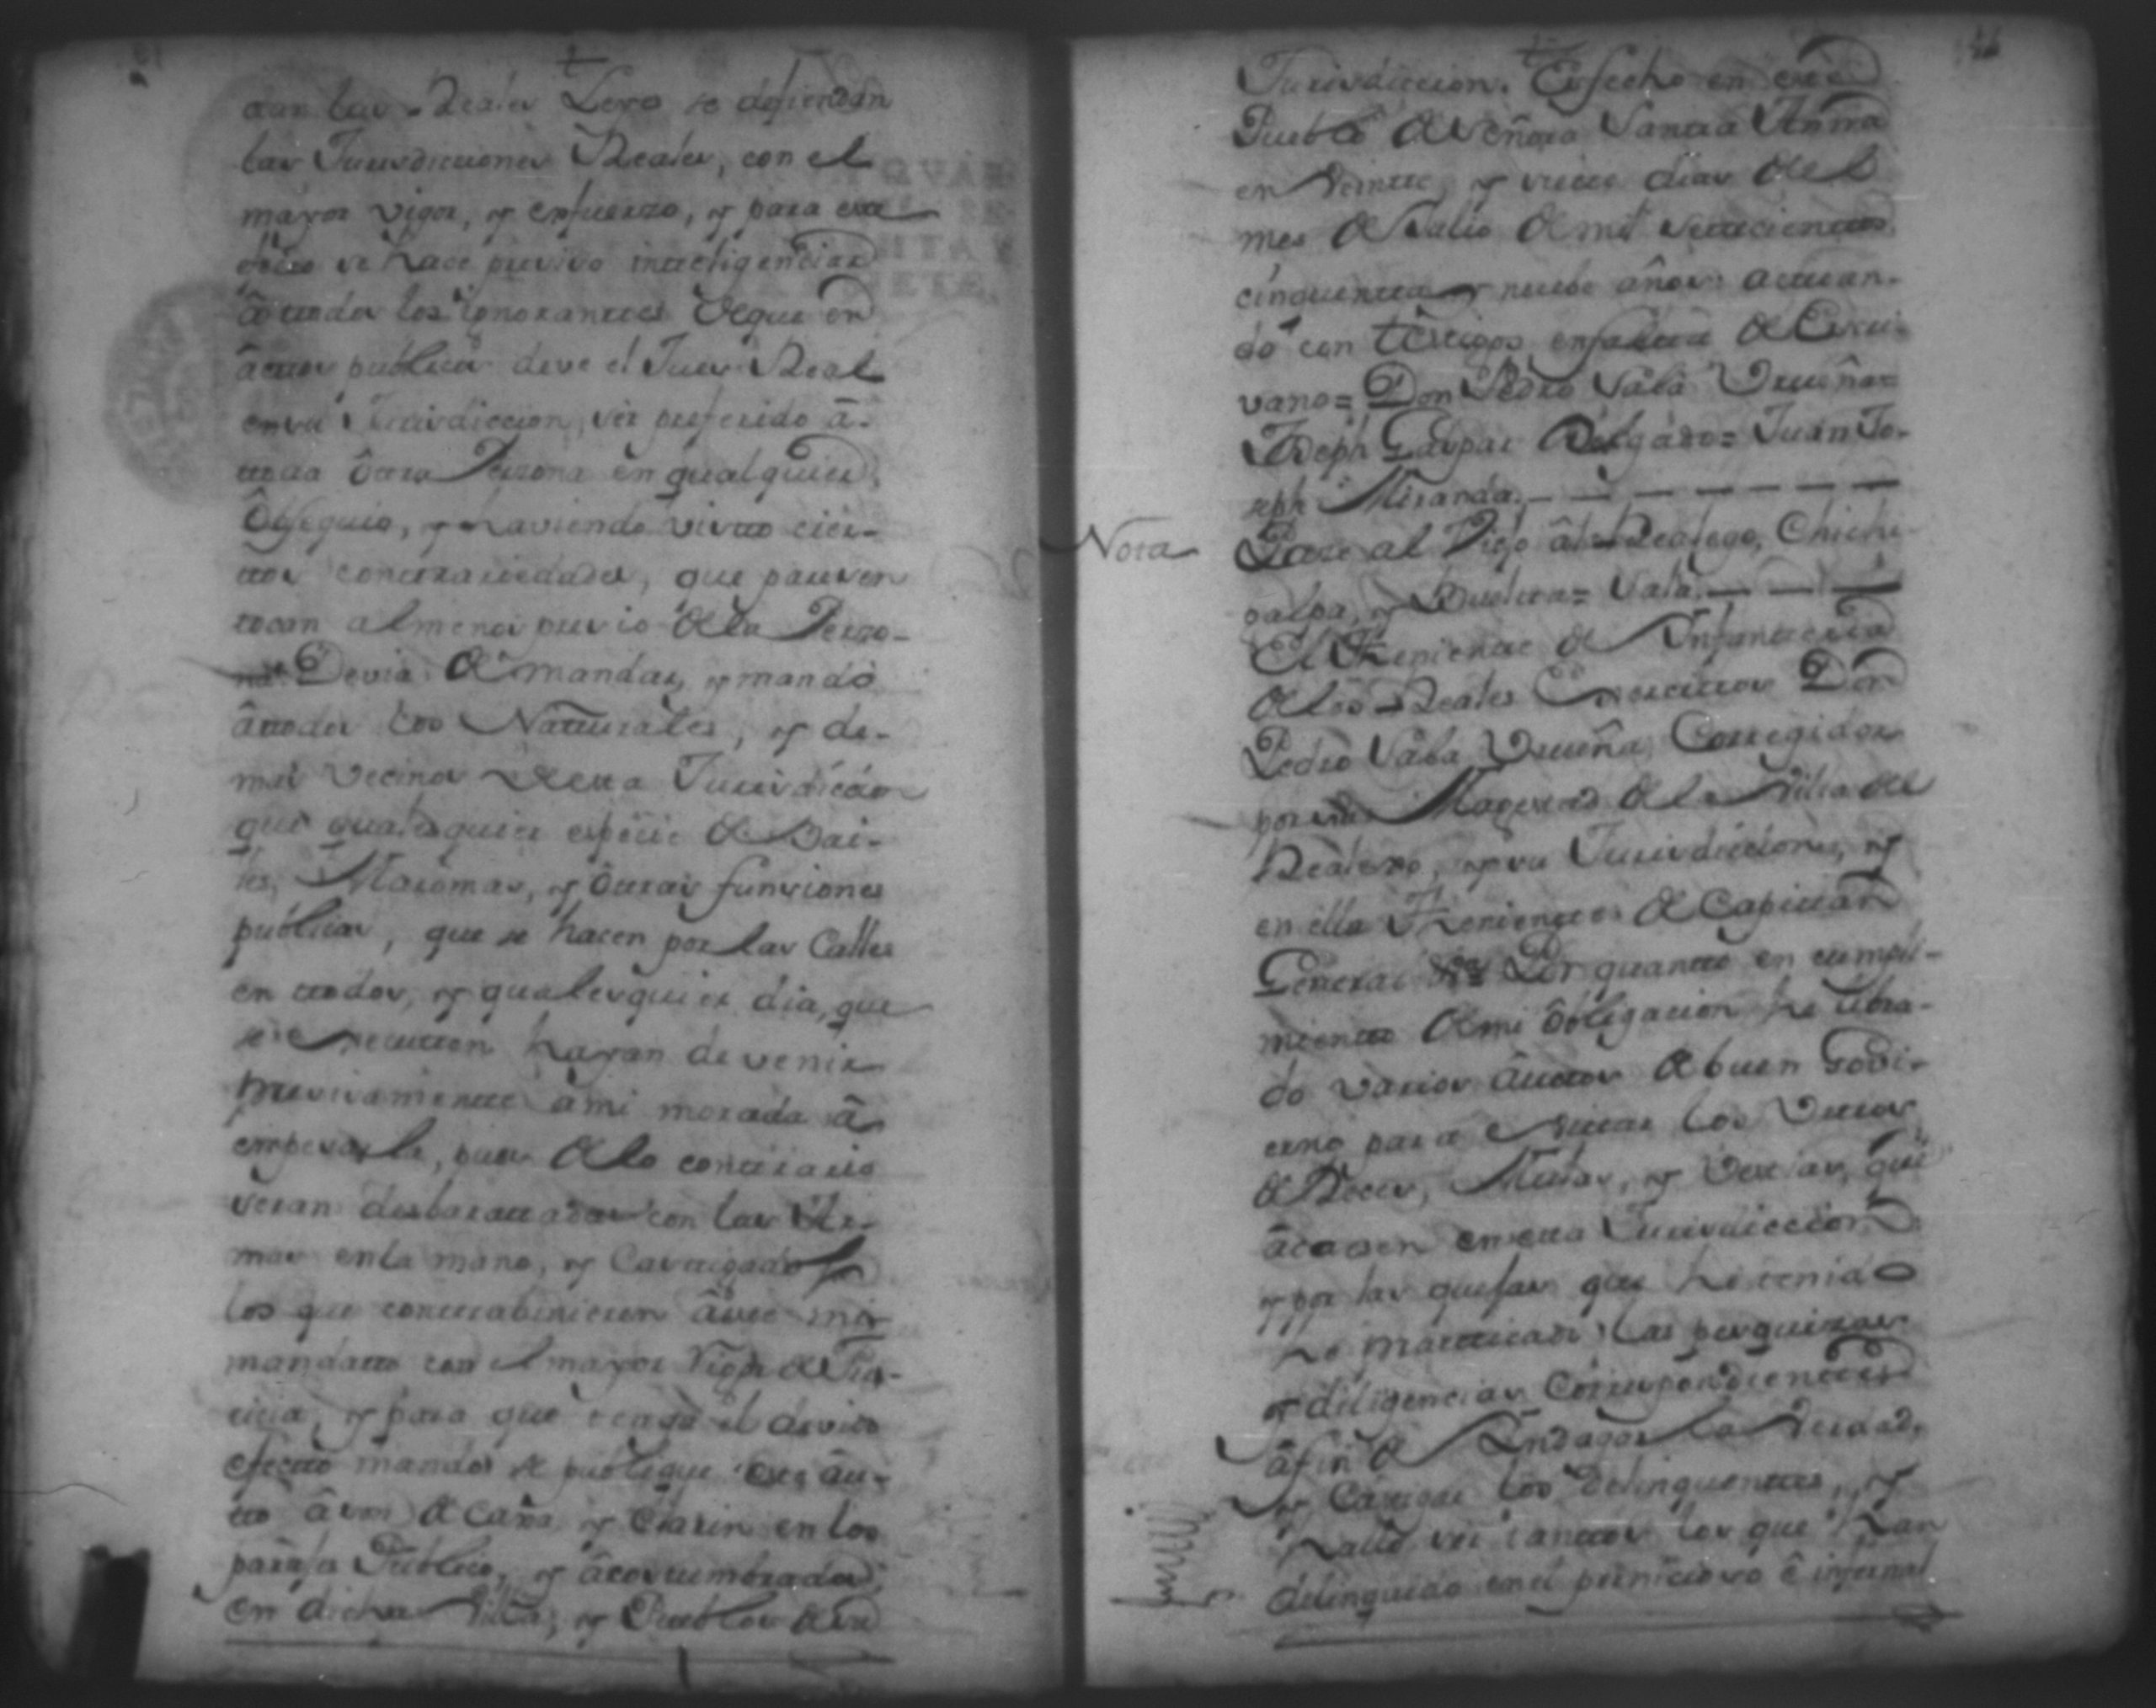 dan las Reales Leyes se defiendan
las Jurisdicciones Reales, con el
mayor vigor, y esfuerzo, y para este
efecto se hace preciso inteligenciar
â todos los ignorantes de que en
âctos publicos deve el Juez Real
en su Jurisdiccion, ser preferido â
toda ôtra Perzona en qualquier
Obsequio, y haviendo visto cier-
tos contrariedades, que
tocan al menos precio de la Perzo-
na: Devia de mandar, y mandò
âtodos los Naturales, y de-
mas Vecinos de esta Jurisdiccion
que qualesquier especie de Bai-
les, Maromas, y ôtras funsiones
publicas, que se hacen por las Calles
en todos, y qualesquier dia, que
se executten hayan de venir
precisamente â mi morada â
empesarla, pues de lo contrario
seran desbaratados con las Ar-
mas en la mano, y Castigados
los que contrabinieren âeste mi
mandato con el mayor Rigor de Jus-
ticia, y para que tenga el devido
efecto mando se publique este âu-
to â son de Caxa, y Clarin en los
parajes Publicos, y âcostumbrados
en dicha Villa, y Pueblos de su
Jurisdiccion. Es fecho en este
Pueblo de Señora Santa Anna
en veinte, y siete dias del
mes de Julio de mil setecientos
cinquenta y nuebe años: actuan-
do con testigos en falta de Escri-
vano= Don Pedro Saba Urueña=
Joseph Gaspar Delgado= Juan Jo-
seph Miranda. — — — — — — —
Nota Pase al Viejo âl Realejo, Chichi-
galpa, y = Saba. — — —
El Theniente de Infanteria
de los Reales Exercitos Don
Pedro Saba Urueña Corregidor
por su Magestad de la Villa del
Realexo, y su Jurisdiccion, y
en ella Theniente de Capitan
General &a= Por quanto en cumpli-
miento de mi ôbligacion he libra-
do varios âutos de buen Govi-
erno para evitar los
de Reces, Mulas, y Vestias, que
âcaesen en esta Jurisdiccion
y por las quejas que he tenido
he practicado las pesquizas
y diligencias Correspondientes
âfin de Indagar la Verdad,
y Castigar los Delinquentes, y
hallo ser tantos los que han
delinquido en el pernicioso ê infernal